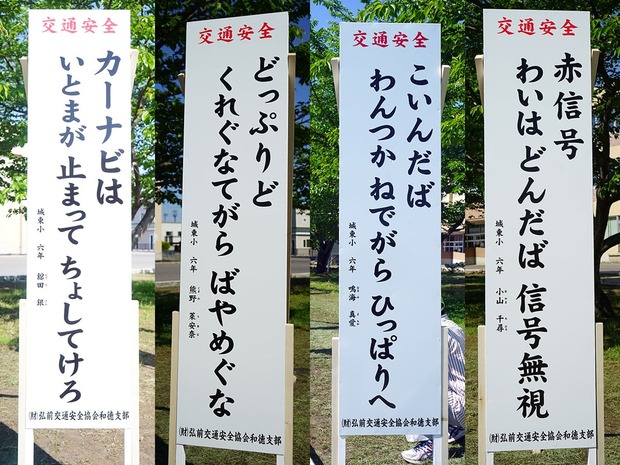 交通安全
カーナビは
いとまが 止まって ちょしてけろ
城東小 六年 舘田 銀
(財)弘前交通安全協会和徳支部
交通安全
どっぷりど
くれぐなてがら ばやめぐな
城東小 六年 熊野 茉安奈
(財)弘前交通安全協会和徳支部
交通安全
こいんだば
わんつか ねでがら ひっぱりへ
城東小 六年 鳴海 真愛
(財)弘前交通安全協会和徳支部
交通安全
赤信号
わいは どんだば 信号無視
城東小 六年 小山 千尋
(財)弘前交通安全協会和徳支部